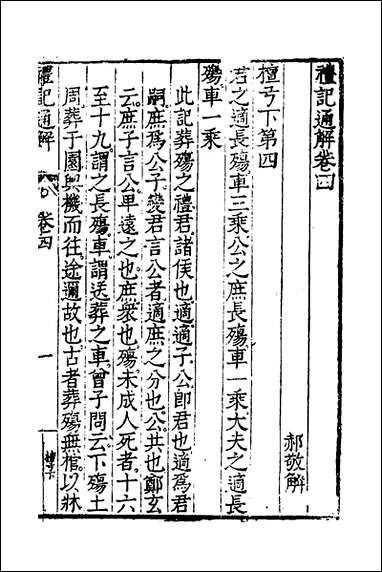 禮記通解卷四
郝敬解
檀弓下第四
君之適長殤車三乘公之庶長殤車一乘大夫之適長
殤車一乘
此記葬殤之禮君諸侯也適適子公卽君也適爲君
嗣庶爲公子變君言公者適庶之分也公共也鄭玄
云庶子言公卑遠之也庶衆也殤未成人死者十六
至十九謂之長殤車謂送葬之車曾子問云下殤土
周葬于園輿機而往途邇故也古者葬殤無棺以牀
禮記通解
卷四
一
檀弓下